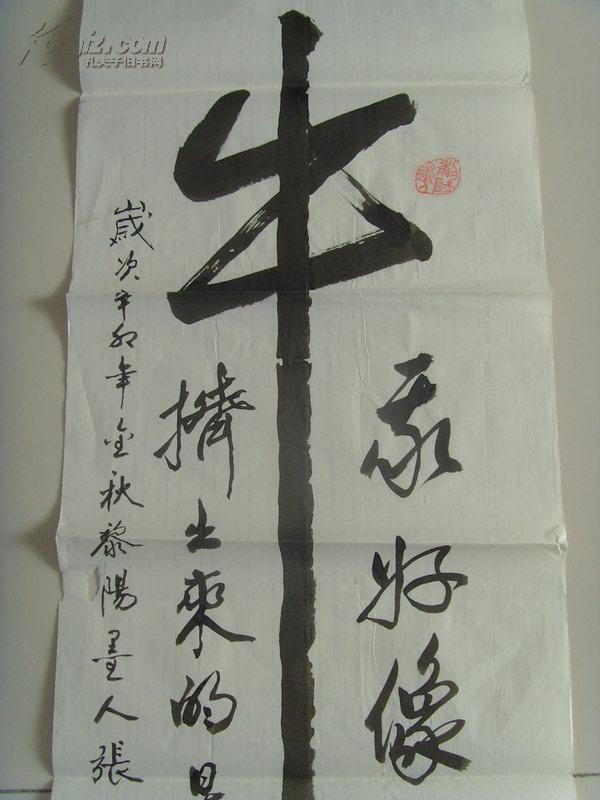 牛
我好像
擠出來的
歲次辛卯年金秋黎陽墨人張
孔夫子旧书网